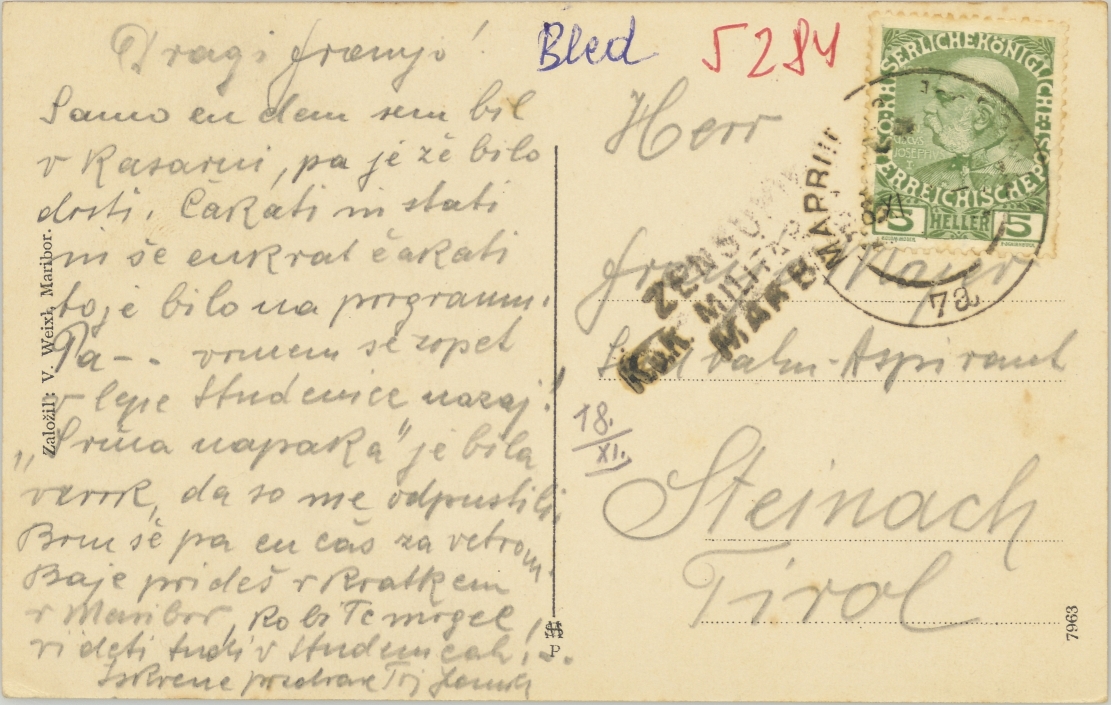 Dragi Franjo!
Samo en dan sem bil
v kasarni, pa je že bilo
dosti. Čakati in stati
in še enkrat čakati
to je bilo na programu.
Pa -- vrnem se zopet
v lepe Studenice nazaj!
"Srčna napaka" je bila
vzrok, da so me odpustili.
Bom še pa en čas za vetrom!
Baje prideš v kratkem
v Maribor, ko bi Te mogel
videti tudi v Studenicah!
Iskrene pozdrave Tvoj
Založil: V. Weixl, Maribor.
P
Bled
5284
KAISERLICHE KÖNIGLICHE
ÖSTERREICHISCHE POST
5 HELLER 5
ZENSURIERT
K.u.K. MILITÄR
MARB
MARBURG
7a
Herr
Franjo Mayr
Südbahn-Aspirant
18./XI.
Steinach
Tirol
7963